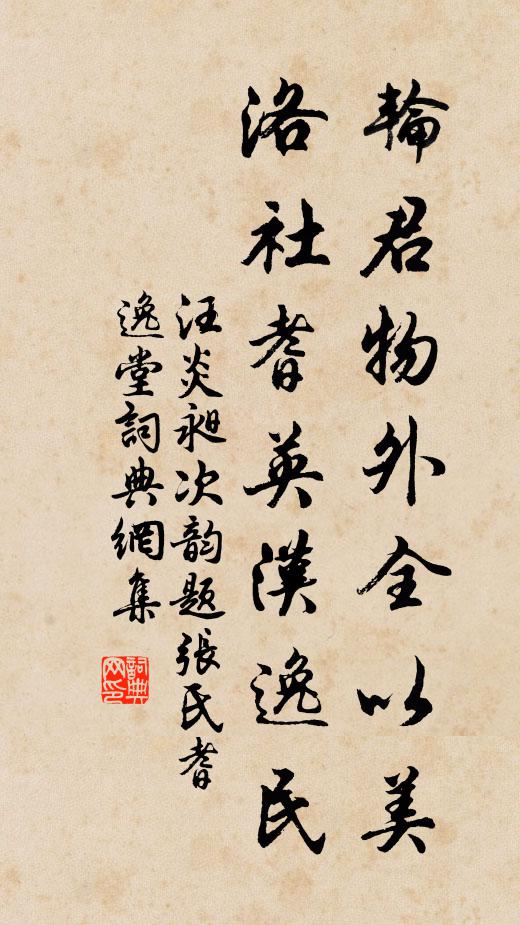 輪君物外全以美
洛社耆英漢逸民
汪炎昶次韵題張氏耆
逸堂詞典網集
詞典网印